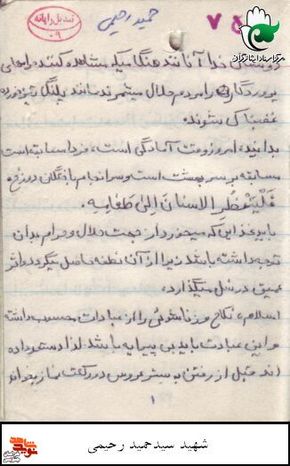 تبدیل رایانه
۰۹
حمید رحیمی
۷
مرکز اسناد ایثارگران
دوستان خدا آنانند هنگامیکه مشاهده کنند حرامهای
پروردگار را مردم حلال میشمرند مانند پلنگ تیر خورده
غضبناک میشوند.
بدانید، امروز وقت آمادگی است، فردا مسابقه است
مسابقه بر سر بهشت است و سرانجام بازندگان دوزخ ه
فَلْيَنْظُرِ الاِنسانُ اِلىٰ طَعامِهِ.
باید غذائی که میخورد از جهت حلال و حرام بدان
توجه داشته باشد زیرا از آن نطفه حاصل میگردد و اثر
عمیق در نسل میگذارد.
اسلام، نکاح و زناشوئی را از عبادات محسوب داشته
و این عبادت باید بی پیرایه باشد لذا دستور داده
اند قبل از رفتن به بستر عروس دو رکعت نماز بخواند
۱
شهید سیدحمید رحیمی